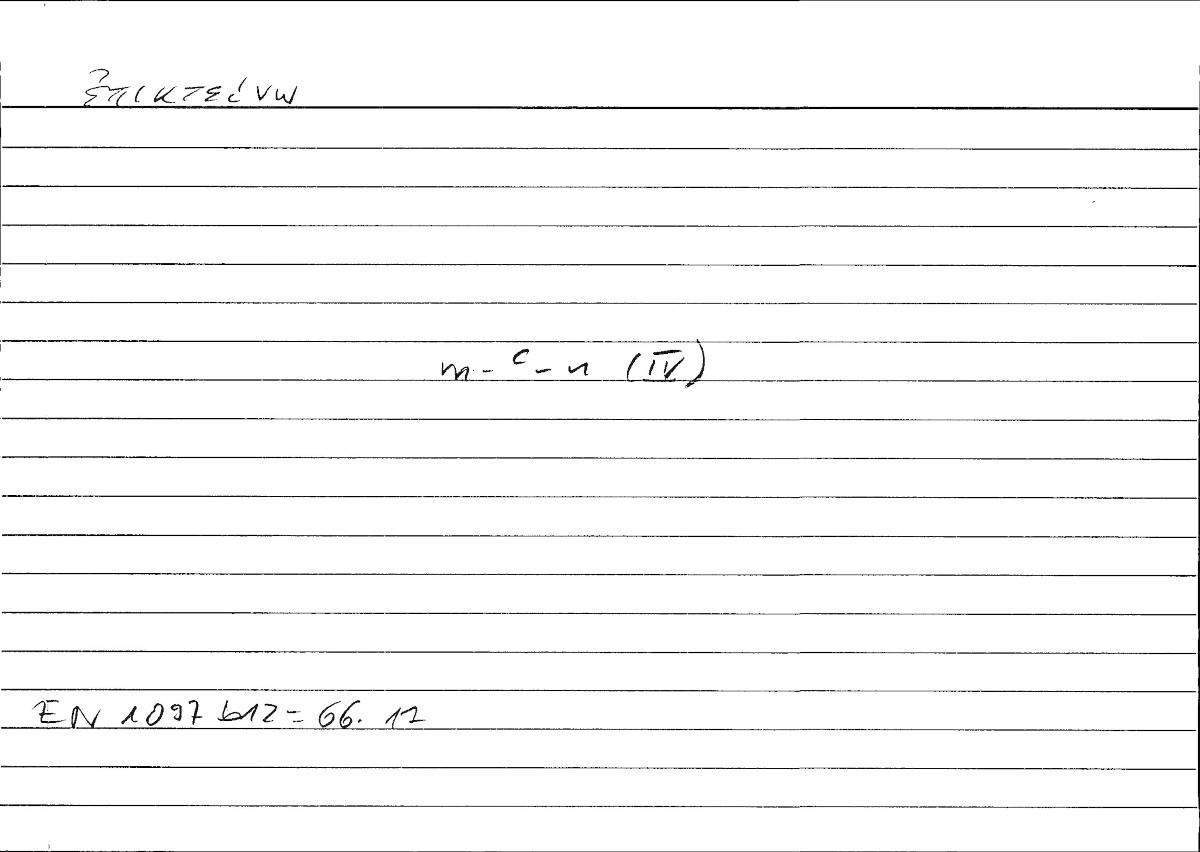 ἐπικτείνω
m-ᶜ-n (IV)
EN 1097 b12 = 66. 12